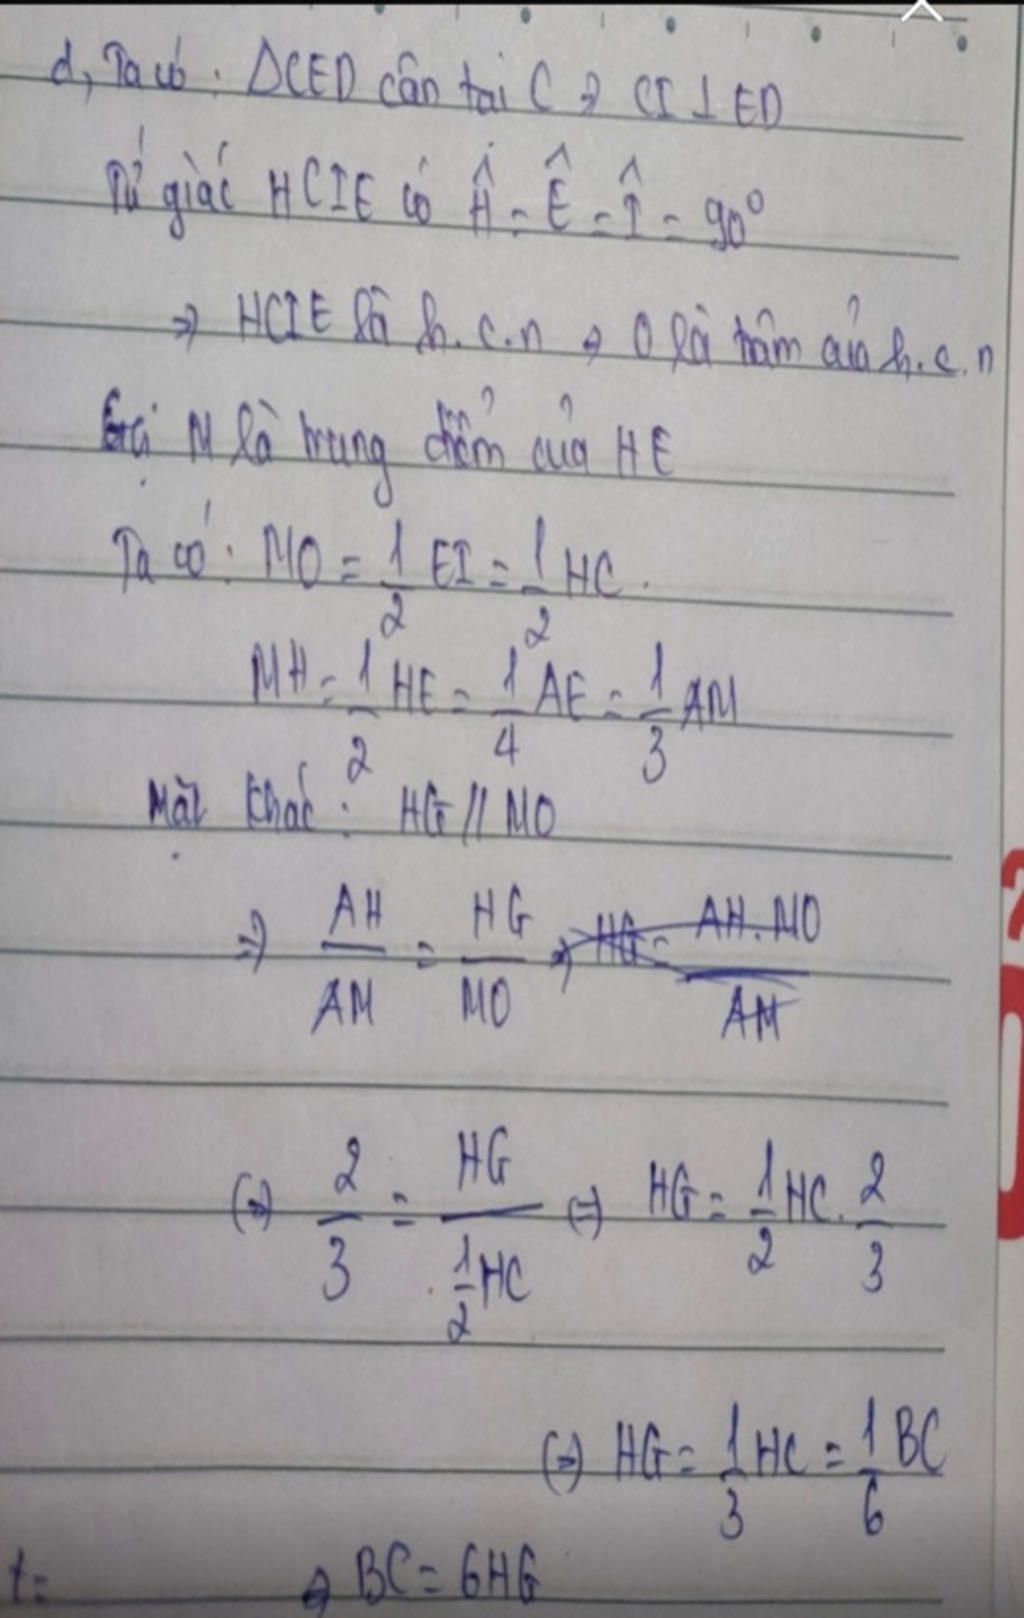 d, Ta có : ΔCED cân tại C => CI ⊥ ED
Tứ giác HCIE có Ĥ = Ê = Î = 90°
=> HCIE là h.c.n => O là tâm của h.c.n
Gọi M là trung điểm của HE
Ta có : MO = 1/2 EI = 1/2 HC.
MH = 1/2 HE = 1/4 AE = 1/3 AM
Mặt khác : HG // MO
=> AH/AM = HG/MO => HG = AH.MO/AM
(=) 2/3 = HG/(1/2 HC) (=) HG = 1/2 HC . 2/3
(=) HG = 1/3 HC = 1/6 BC
t= => BC = 6HG